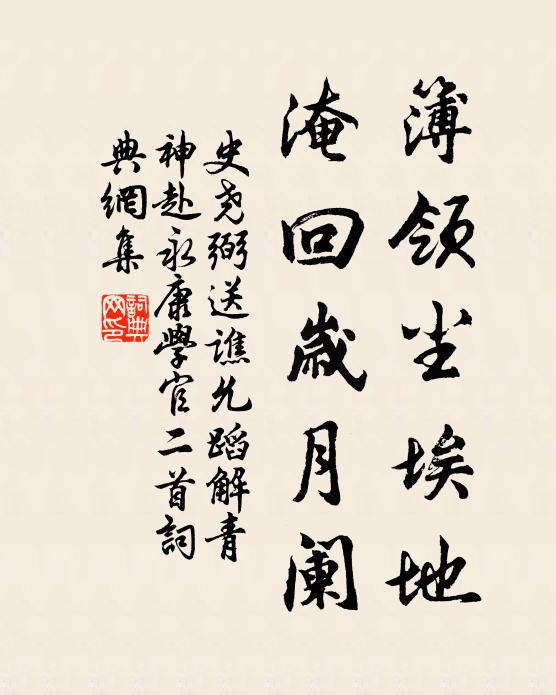 簿領尘埃地
淹回歲月阑
史尧弼送譙允蹈解青
神赴永康學官二首詞
典網集
詞典网印